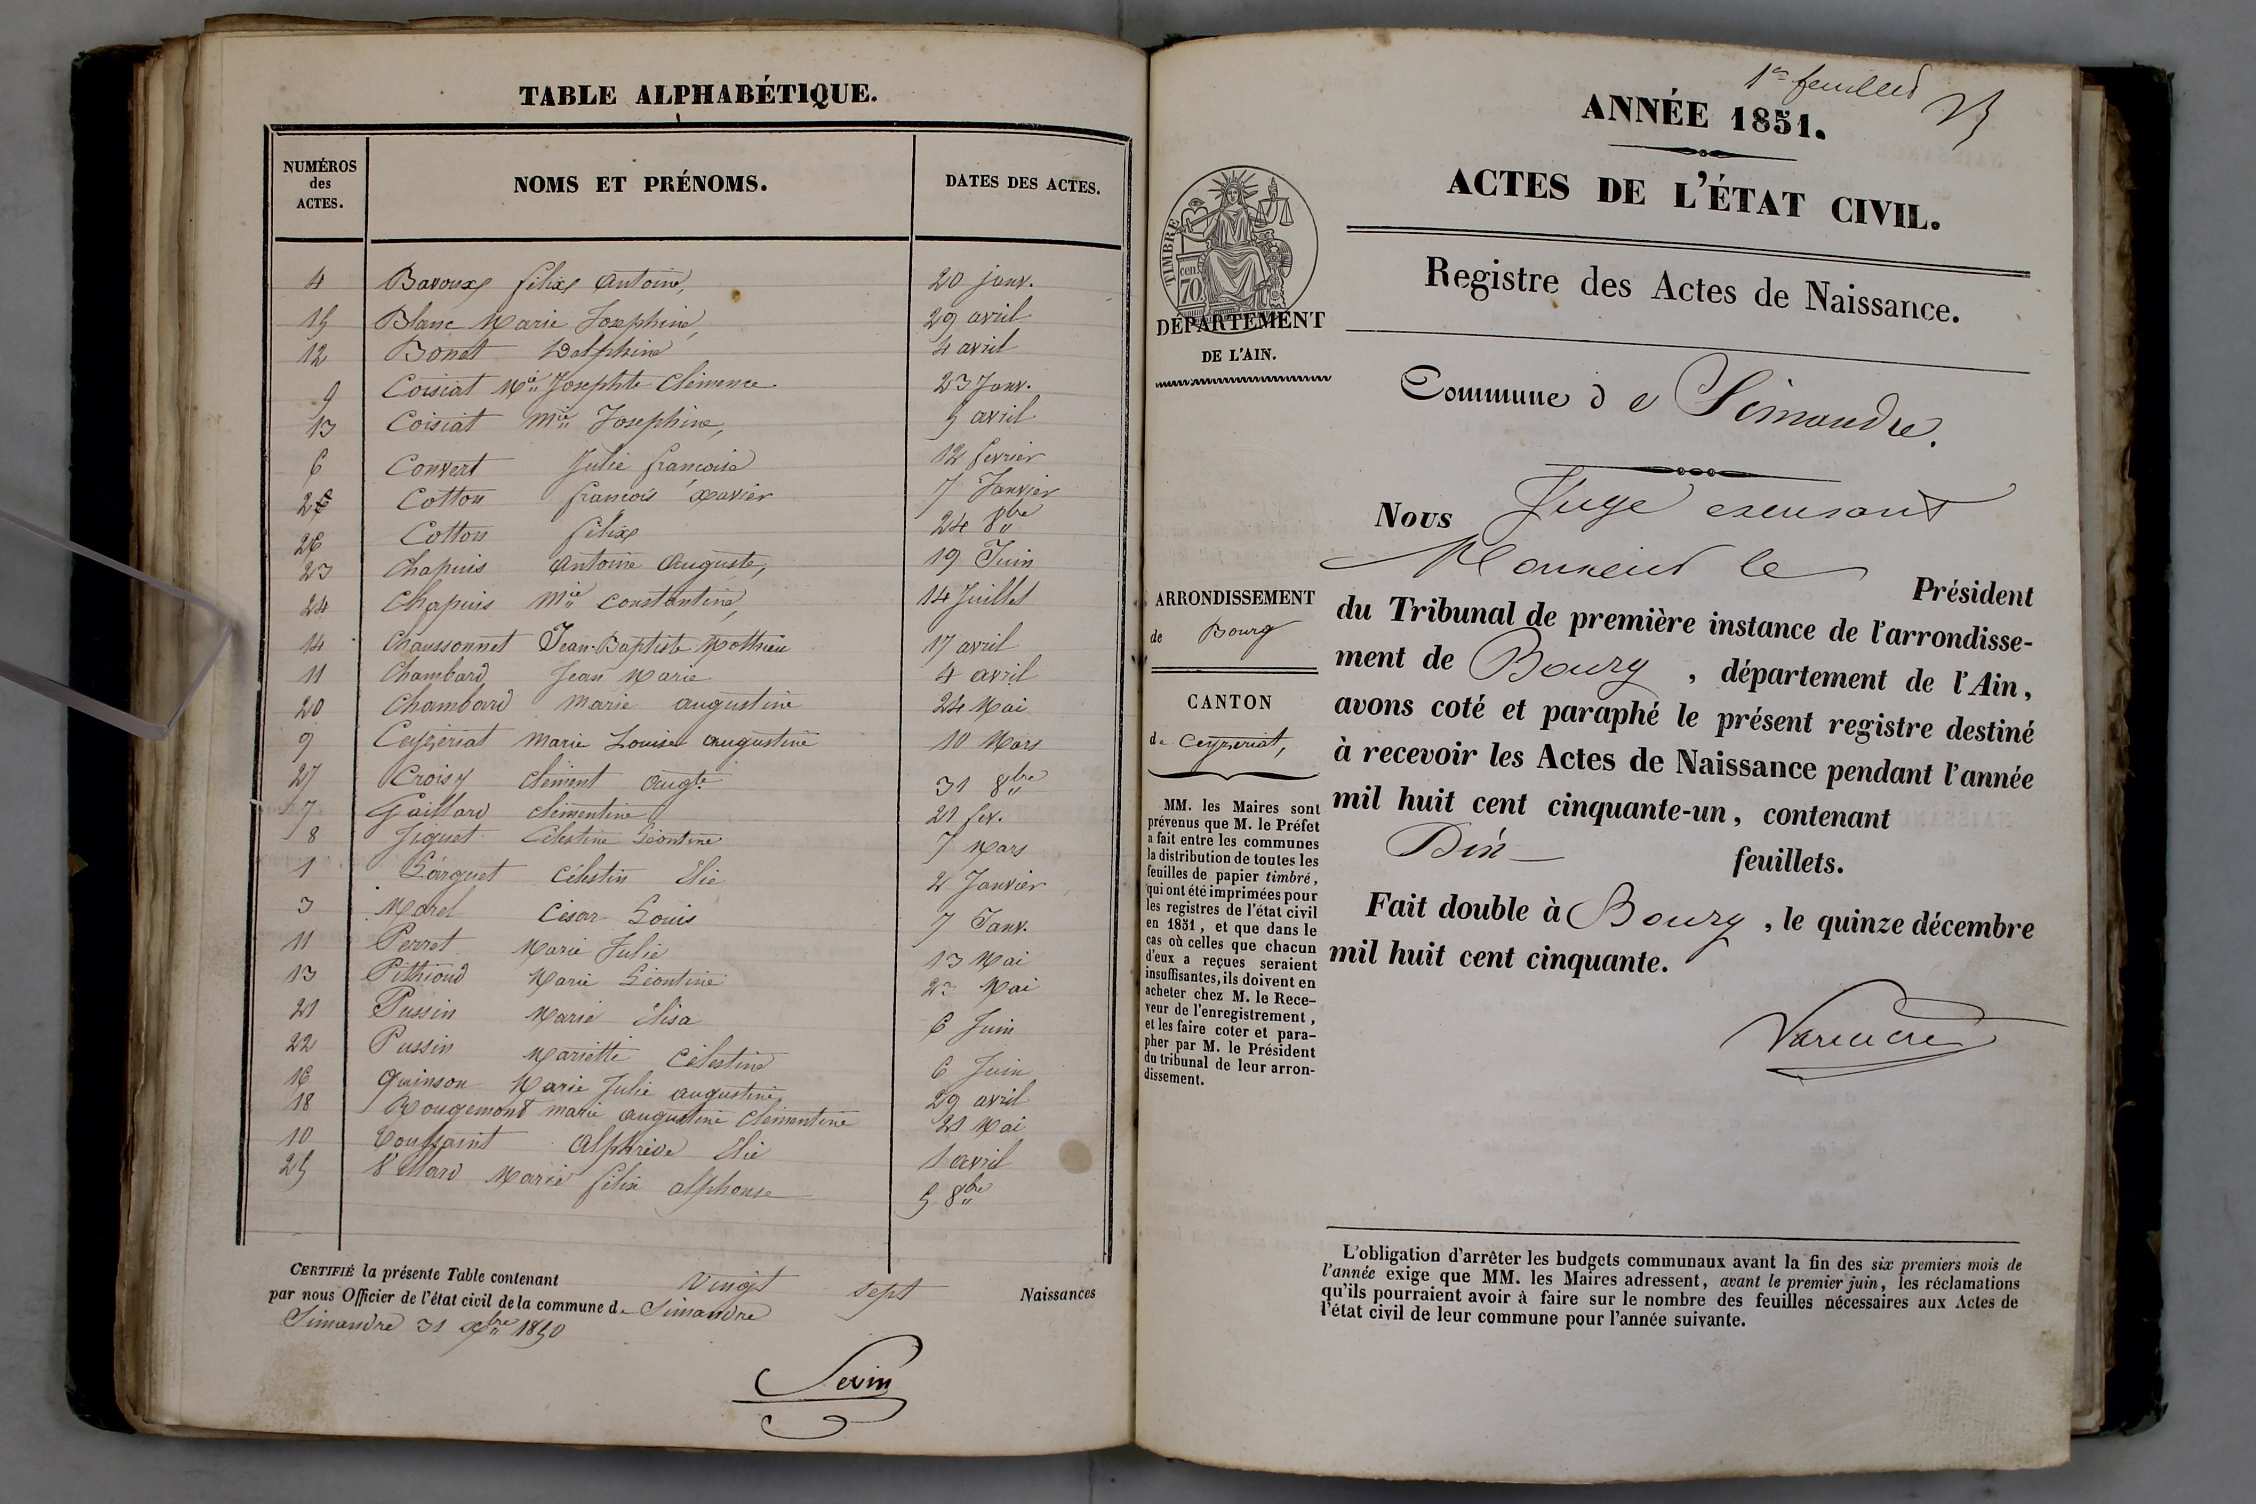 TABLE ALPHABÉTIQUE.
NUMÉROS des ACTES. NOMS ET PRÉNOMS. DATES DES ACTES.
4 Bavoux félix Antoine, 20 janv.
15 Blanc Marie Josephine, 29 avril
12 Bonet Delphine 4 avril
9 Coisiat Mie Josephte Clémence 23 Janv.
13 Coisiat Mie Josephine, 5 avril
6 Convert Julie françoise 12 fevrier
2 Cotton françois xavier 7 Janvier
26 Cotton félix 24 8bre
23 Chapuis Antoine Auguste, 19 Juin
24 Chapuis Mie Constantine, 14 Juillet
14 Chaussonnet Jean-Baptiste Mathieu 17 avril
11 Chambard Jean Marie 4 avril
20 Chambard Marie augustine 24 Mai
9 Ceyzeriat Marie Louise augustine 10 Mars
27 Croisy Clément augte 31 8bre
7 Gaillard Clémentine 21 fev.
8 Jiguet Célestine Léontine 7 Mars
1 Larguet Célestin Elie 2 Janvier
3 Morel César Louis 7 Janv.
11 Perret Marie Julie 13 Mai
13 Pithioud Marie Léontine 23 Mai
21 Pussin Marie élisa 6 Juin
22 Pussin Mariette Célestine 6 Juin
16 Quinson Marie Julie augustine 29 avril
18 Rougemont marie augustine Clémentine 21 Mai
10 Toussaint Alphrède Elie 1 avril
25 Villard Marie félix alphonse 5 8bre
CERTIFIÉ la présente Table contenant Vingt sept Naissances
par nous Officier de l'état civil de la commune de Simandre
Simandre 31 xbre 1850
Sevin
1er feuillet
ANNÉE 1851.
ACTES DE L'ÉTAT CIVIL.
Registre des Actes de Naissance.
TIMBRE
70 cen.
DÉPARTEMENT
DE L'AIN.
Commune de Simandre.
ARRONDISSEMENT
de Bourg
CANTON
de Ceyzeriat,
MM. les Maires sont
prévenus que M. le Préfet
a fait entre les communes
la distribution de toutes les
feuilles de papier timbré,
qui ont été imprimées pour
les registres de l'état civil
en 1851, et que dans le
cas où celles que chacun
d'eux a reçues seraient
insuffisantes, ils doivent en
acheter chez M. le Rece-
veur de l'enregistrement,
et les faire coter et para-
pher par M. le Président
du tribunal de leur arron-
dissement.
Nous Juge excusant
Monsieur le Président
du Tribunal de première instance de l'arrondisse-
ment de Bourg, département de l'Ain,
avons coté et paraphé le présent registre destiné
à recevoir les Actes de Naissance pendant l'année
mil huit cent cinquante-un, contenant
Dix feuillets.
Fait double à Bourg, le quinze décembre
mil huit cent cinquante.
L'obligation d'arrêter les budgets communaux avant la fin des six premiers mois de
l'année exige que MM. les Maires adressent, avant le premier juin, les réclamations
qu'ils pourraient avoir à faire sur le nombre des feuilles nécessaires aux Actes de
l'état civil de leur commune pour l'année suivante.